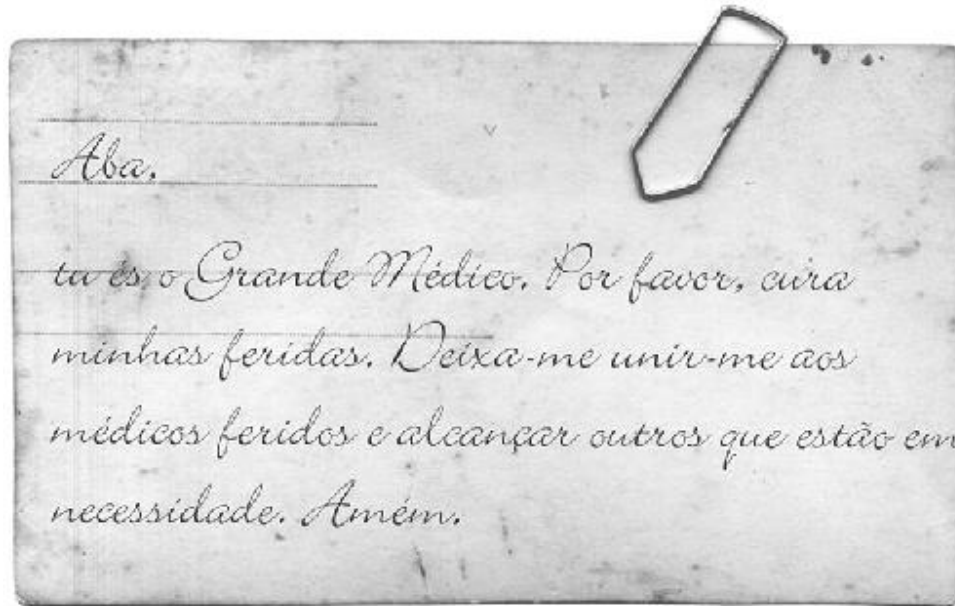 Aba,
tu és o Grande Médico. Por favor, cura
minhas feridas. Deixa-me unir-me aos
médicos feridos e alcançar outros que estão em
necessidade. Amém.